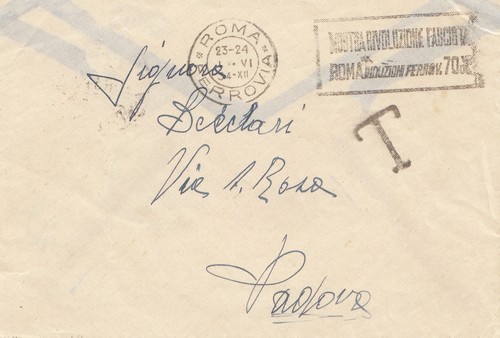 ROMA
FERROVIA
23-24
VI
34-XII
MOSTRA RIVOLUZIONE FASCISTA
ROMA RIDUZIONI FERROV. 70%
T
Signora
Beclari
Via S. Rosa
Padova